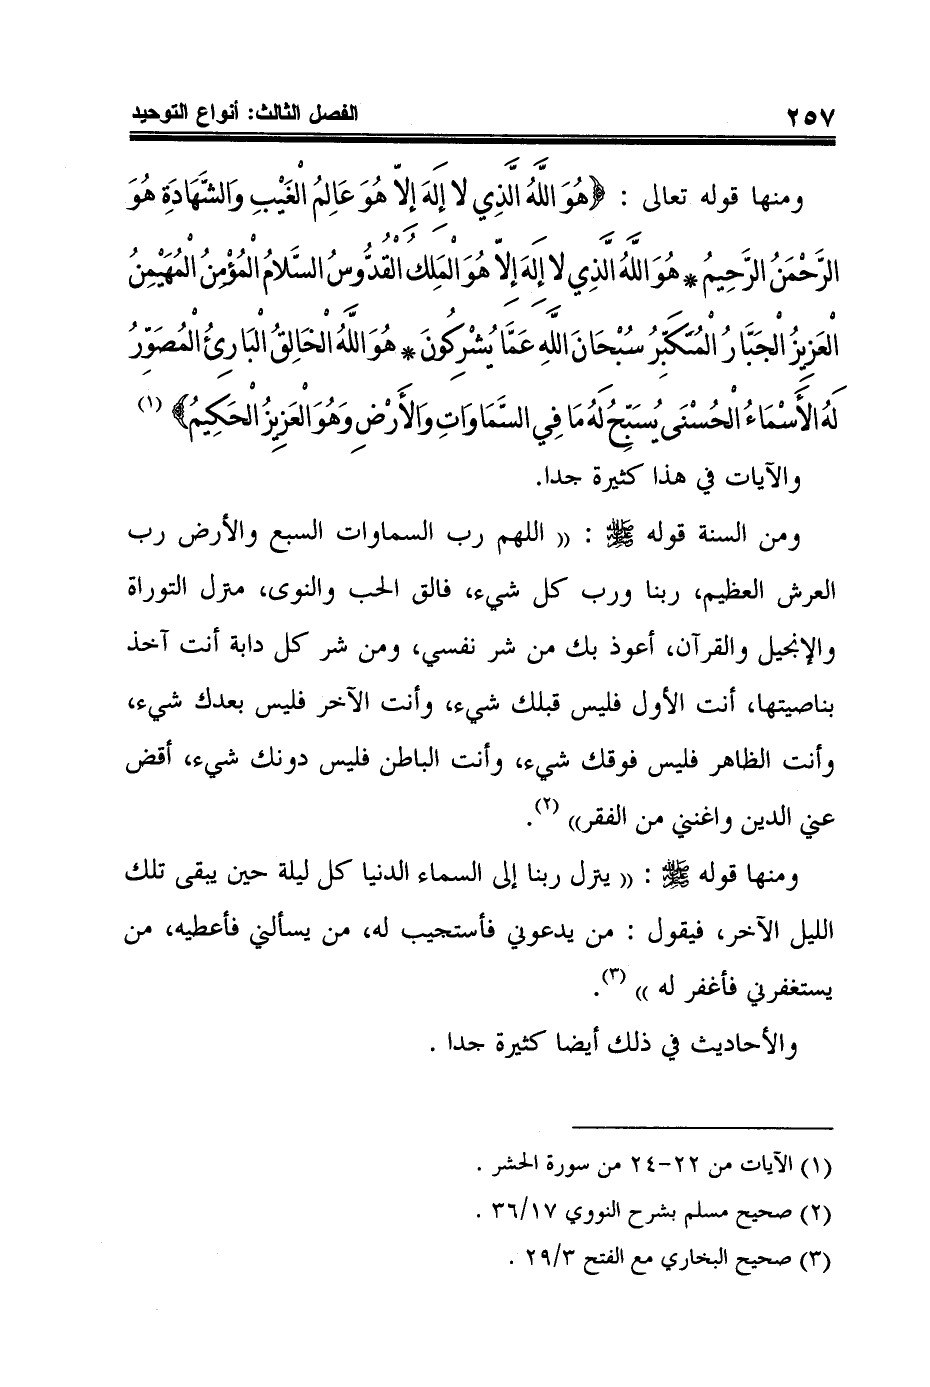 ٢٥٧ الفصل الثالث: أنواع التوحيد
ومنها قوله تعالى : ﴿هُوَ اللَّهُ الَّذِي لا إِلَهَ إِلاّ هُوَ عَالِمُ الْغَيْبِ وَالشَّهَادَةِ هُوَ
الرَّحْمَنُ الرَّحِيمُ * هُوَ اللَّهُ الَّذِي لا إِلَهَ إِلاّ هُوَ الْمَلِكُ الْقُدُّوسُ السَّلامُ الْمُؤْمِنُ الْمُهَيْمِنُ
الْعَزِيزُ الْجَبَّارُ الْمُتَكَبِّرُ سُبْحَانَ اللَّهِ عَمَّا يُشْرِكُونَ * هُوَ اللَّهُ الْخَالِقُ الْبَارِئُ الْمُصَوِّرُ
لَهُ الأَسْمَاءُ الْحُسْنَى يُسَبِّحُ لَهُ مَا فِي السَّمَاوَاتِ وَالأَرْضِ وَهُوَ الْعَزِيزُ الْحَكِيمُ﴾ (١)
والآيات في هذا كثيرة جدا.
ومن السنة قوله ﷺ : (( اللهم رب السماوات السبع والأرض رب
العرش العظيم، ربنا ورب كل شيء، فالق الحب والنوى، منزل التوراة
والإنجيل والقرآن، أعوذ بك من شر نفسي، ومن شر كل دابة أنت آخذ
بناصيتها، أنت الأول فليس قبلك شيء، وأنت الآخر فليس بعدك شيء،
وأنت الظاهر فليس فوقك شيء، وأنت الباطن فليس دونك شيء، أقض
عني الدين واغنني من الفقر)) (٢).
ومنها قوله ﷺ : (( ينزل ربنا إلى السماء الدنيا كل ليلة حين يبقى تلك
الليل الآخر، فيقول : من يدعوني فأستجيب له، من يسألني فأعطيه، من
يستغفرني فأغفر له )) (٣).
والأحاديث في ذلك أيضا كثيرة جدا .
(١) الآيات من ٢٢-٢٤ من سورة الحشر .
(٢) صحيح مسلم بشرح النووي ٣٦/١٧ .
(٣) صحيح البخاري مع الفتح ٢٩/٣ .